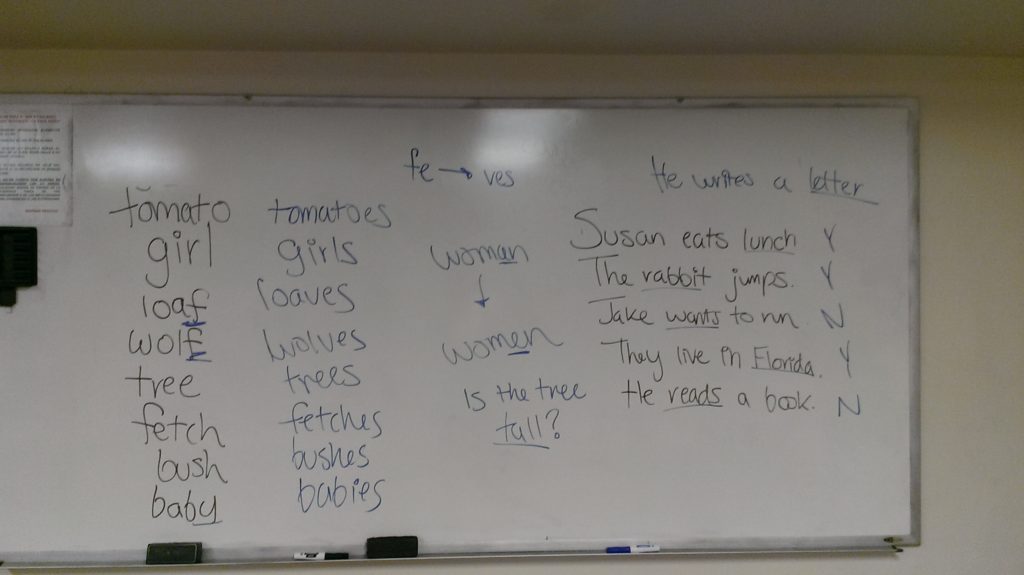 tomato tomatoes
girl girls
loaf loaves
wolf wolves
tree trees
fetch fetches
bush bushes
baby babies
fe → ves
woman
↓
women
Is the tree
tall?
He writes a letter
Susan eats lunch Y
The rabbit jumps. Y
Jake wants to run N
They live in Florida. Y
He reads a book. N